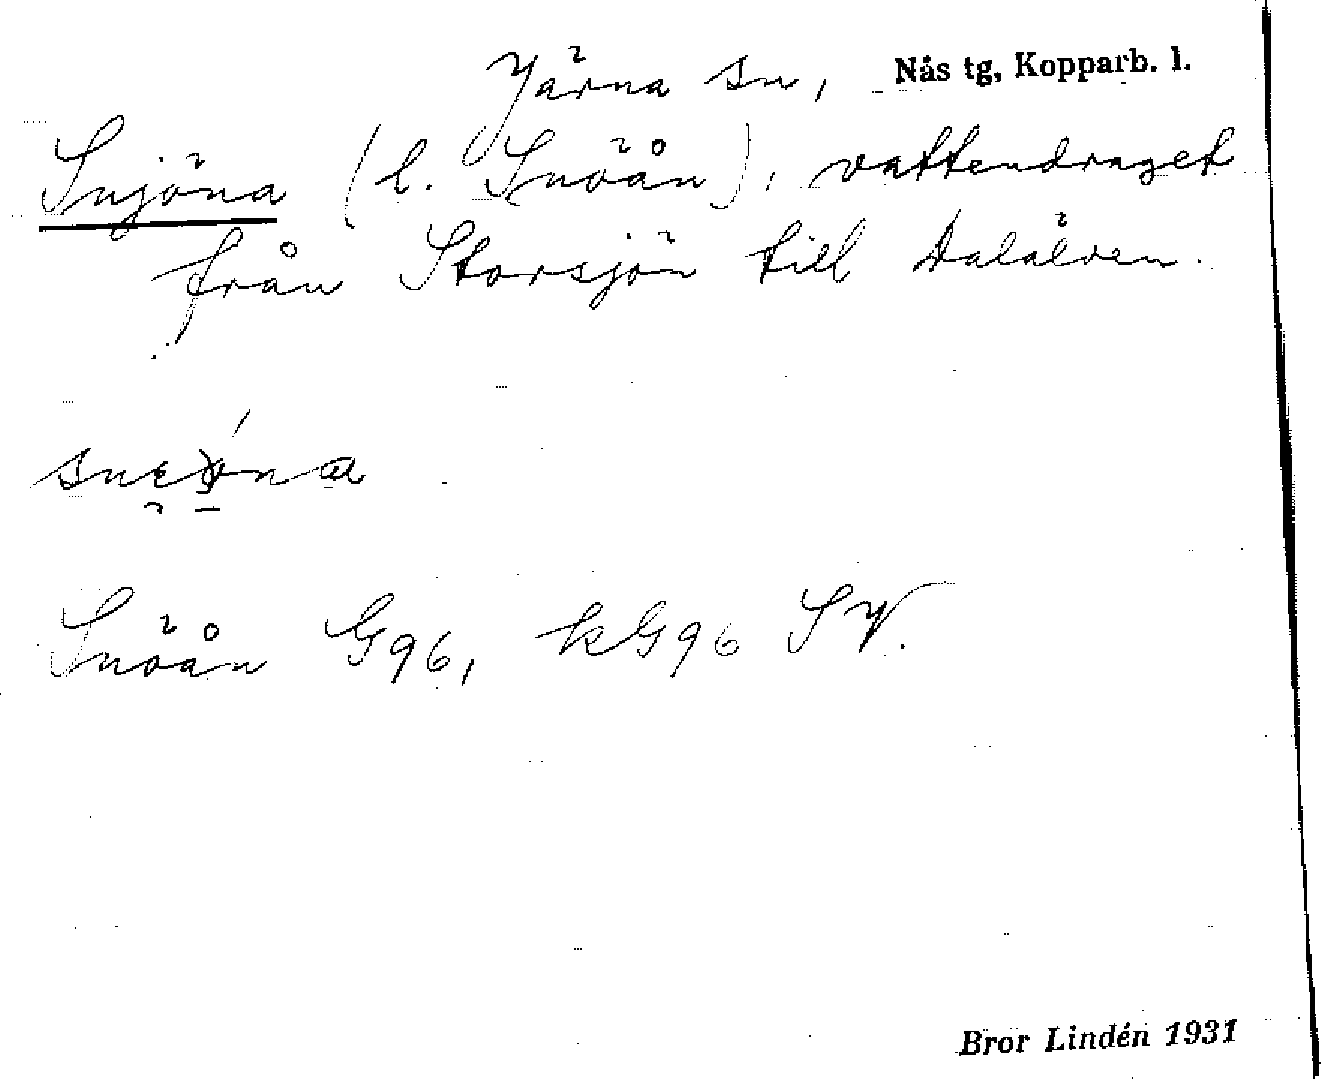 Järna sn, Nås tg, Kopparb. l.
Snjöna (l. Snöån), vattendraget
från Storsjön till Dalälven.
Snöån G96, kG96 SV.
Bror Lindén 1931